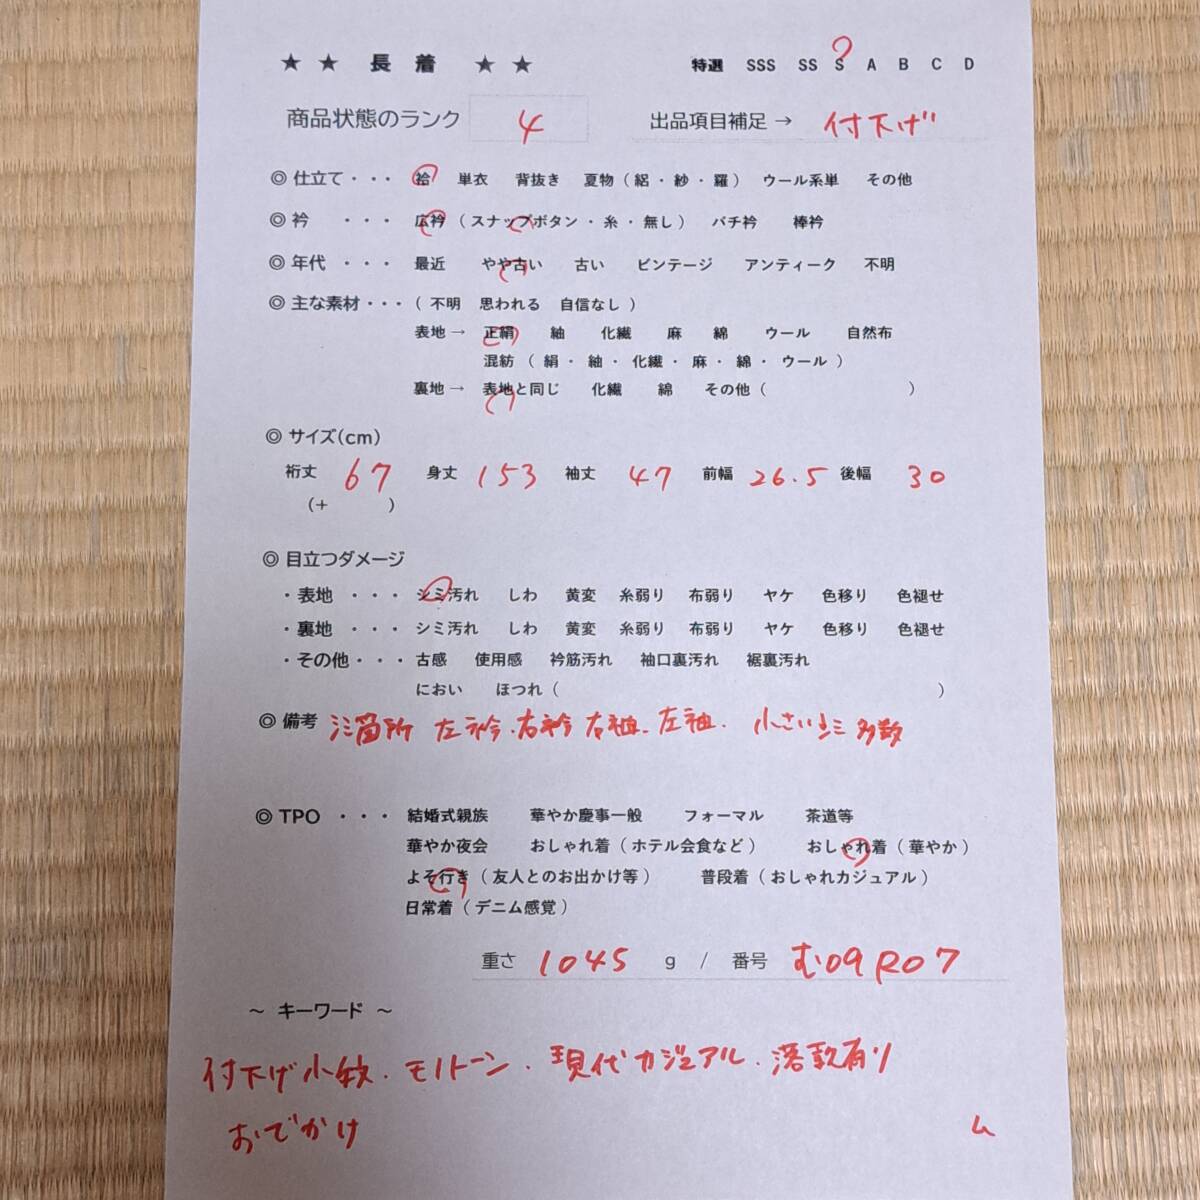 ★ ★ 長 着 ★ ★ 特選 SSS SS S A B C D
商品状態のランク 4 出品項目補足 → 付下げ
◎ 仕立て・・・ 袷 単衣 背抜き 夏物（絽・紗・羅） ウール系単 その他
◎ 衿 ・・・ 広衿（スナップボタン・糸・無し） バチ衿 棒衿
◎ 年代 ・・・ 最近 やや古い 古い ビンテージ アンティーク 不明
◎ 主な素材・・・（ 不明 思われる 自信なし ）
表地→ 正絹 紬 化繊 麻 綿 ウール 自然布
混紡 （ 絹・紬・化繊・麻・綿・ウール ）
裏地→ 表地と同じ 化繊 綿 その他（ ）
◎ サイズ(cm)
裄丈 67 身丈 153 袖丈 47 前幅 26.5 後幅 30
(+ )
◎ 目立つダメージ
・表地 ・・・ シミ汚れ しわ 黄変 糸弱り 布弱り ヤケ 色移り 色褪せ
・裏地 ・・・ シミ汚れ しわ 黄変 糸弱り 布弱り ヤケ 色移り 色褪せ
・その他・・・ 古感 使用感 衿筋汚れ 袖口裏汚れ 裾裏汚れ
におい ほつれ（ ）
◎ 備考 シミ箇所 左衿.右衿 右袖.左袖. 小さいシミ多数
◎ TPO ・・・ 結婚式親族 華やか慶事一般 フォーマル 茶道等
華やか夜会 おしゃれ着（ホテル会食など） おしゃれ着（華やか）
よそ行き（友人とのお出かけ等） 普段着（おしゃれカジュアル）
日常着（デニム感覚）
重さ 1045 g / 番号 む09R07
～ キーワード ～
付下げ小紋.モノトーン.現代カジュアル.落款有り
おでかけ ム